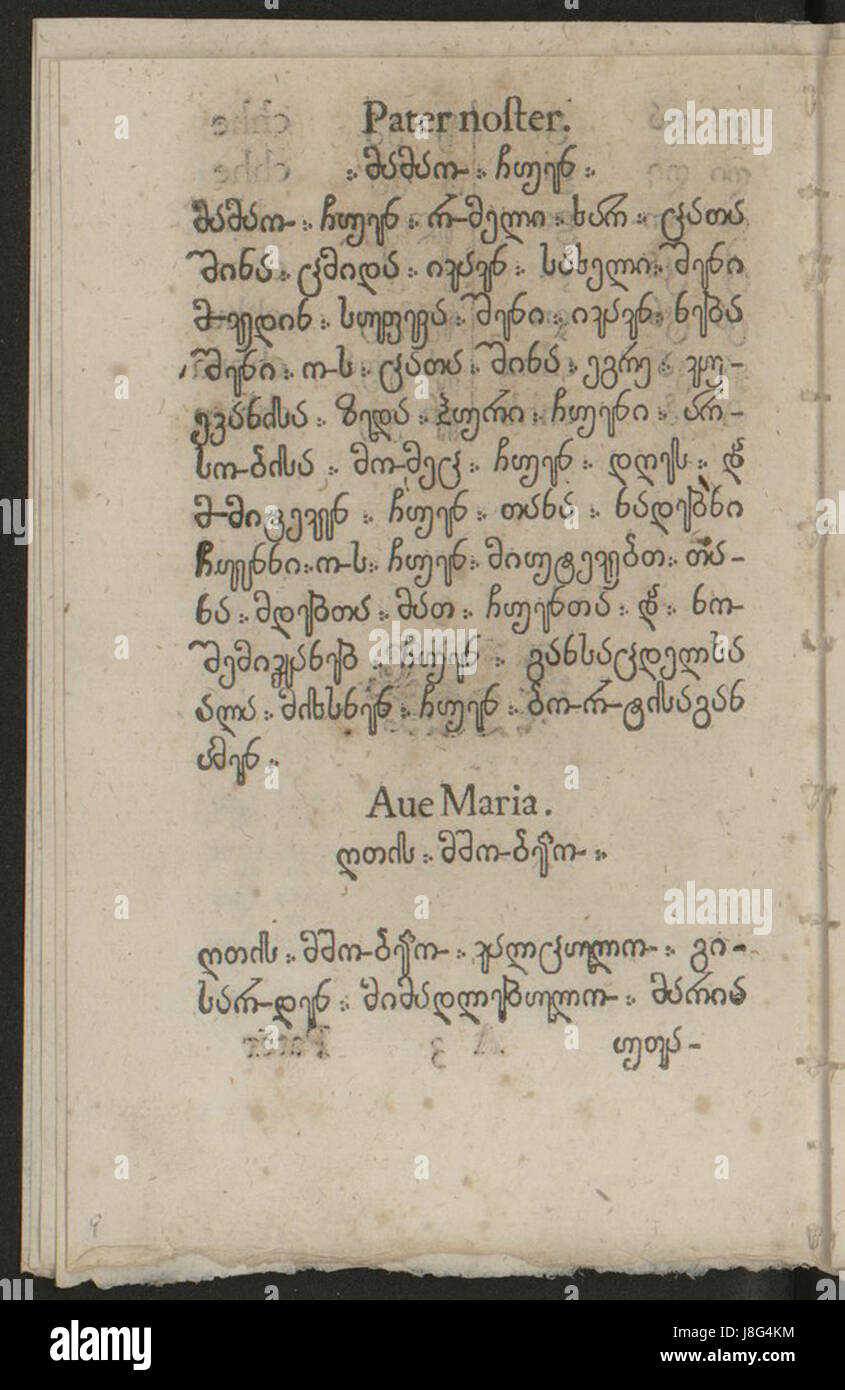 Pater noſter.
:. მამაო :. ჩუენ :.
მამაო :. ჩუენ :. რომელი :. ხარ :. ცათა
შინა :. წმიდა :. იყავნ :. სახელი :. შენი
მოვედინ :. სუფევა :. შენი :. იყავნ :. ნება
შენი :. ო-ს :. ცათა :. შინა :. ეგრე :.
ზედა :. პური :. ჩუენი :. არ-
სო-ბისა :. მო-მეც :. ჩუენ :. დღეს :. და
მო-მიტევენ :. ჩუენ :. თანა :. ნადებნი
ჩუენნი :. ო-ს :. ჩუენ :. მიუტევებთ :. თა-
ნა :. მდებთა :. მათ :. ჩუენთა :. და :. ნო-
შემიყვანებ :. ჩუენ :. განსაცდელსა
ალა :. მიხსნენ :. ჩუენ :. ბო-რო-ტისაგან
ამენ :.
Aue Maria.
ღთის :. მშო-ბელო- :.
ღთის :. მშო-ბელო- :. ქალწულო- :. გი-
ხარო-დენ :. მიმადლებულო- :. მარია
alamy
Image ID: J8G4KM
www.alamy.com